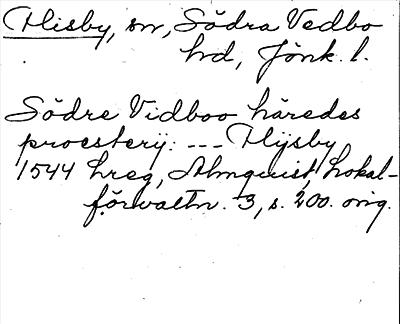 Flisby, sn, Södra Vedbo
hd, Jönk. l.
Södre Vidboo häredes
proesterij: --- Flijsby
1544 hreg, Almquist, Lokal-
förvaltn. 3, s. 200. orig.